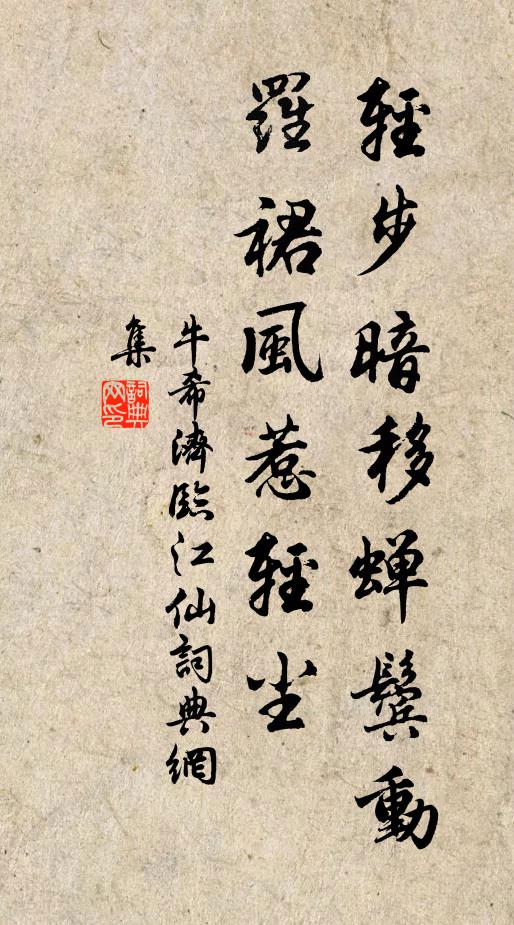 輕步暗移蟬鬢動
羅裙風惹輕尘
牛希濟臨江仙詞典網
集
詞典網印